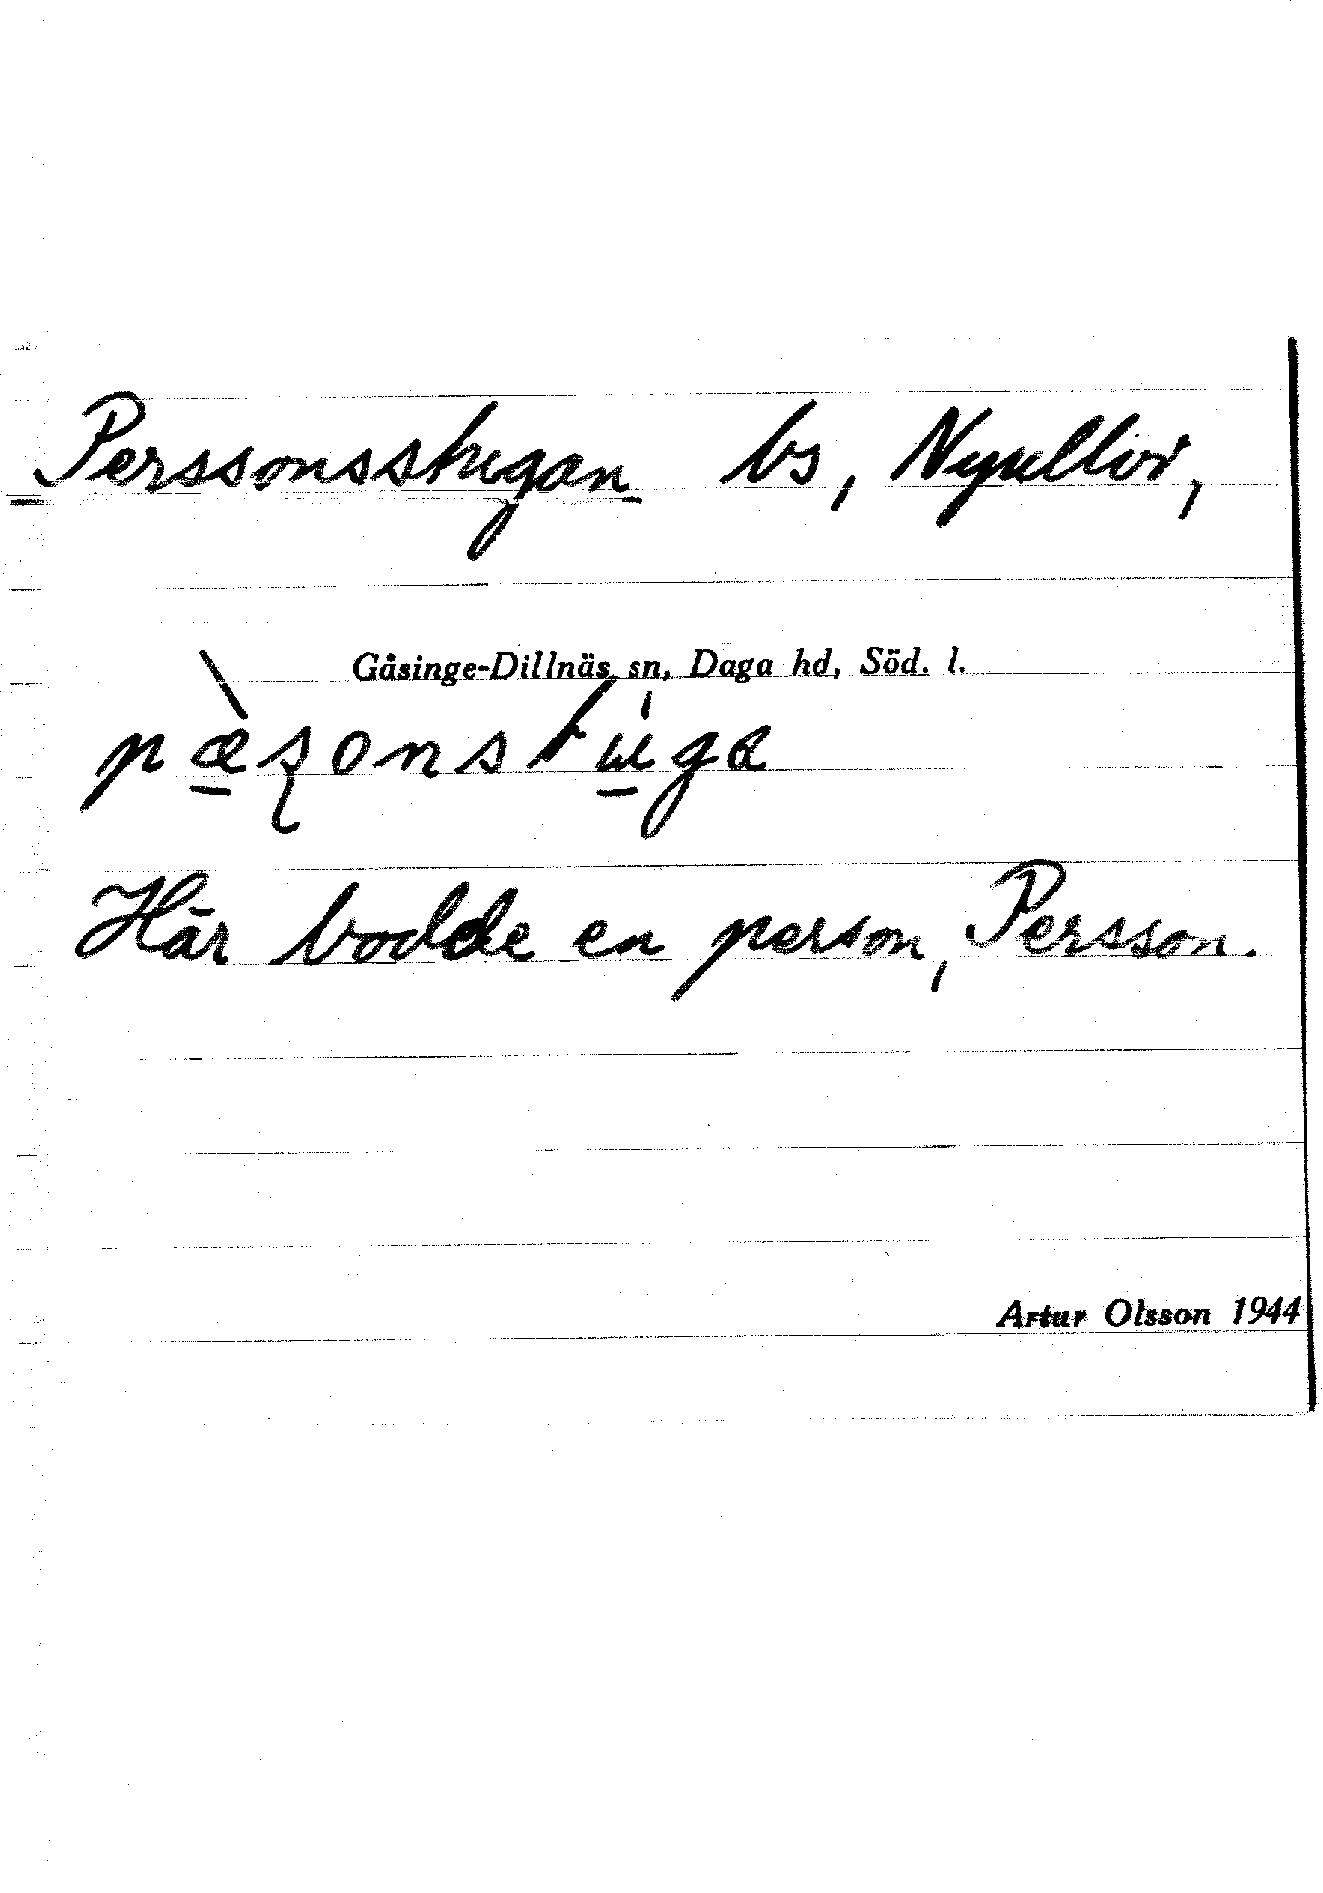 Personsstugan bs, Nyckelbo,
Gåsinge-Dillnäs sn, Daga hd, Söd. l.
pæ̀ʂonstu̍ga
Här bodde en person, Persson.
Artur Olsson 1944